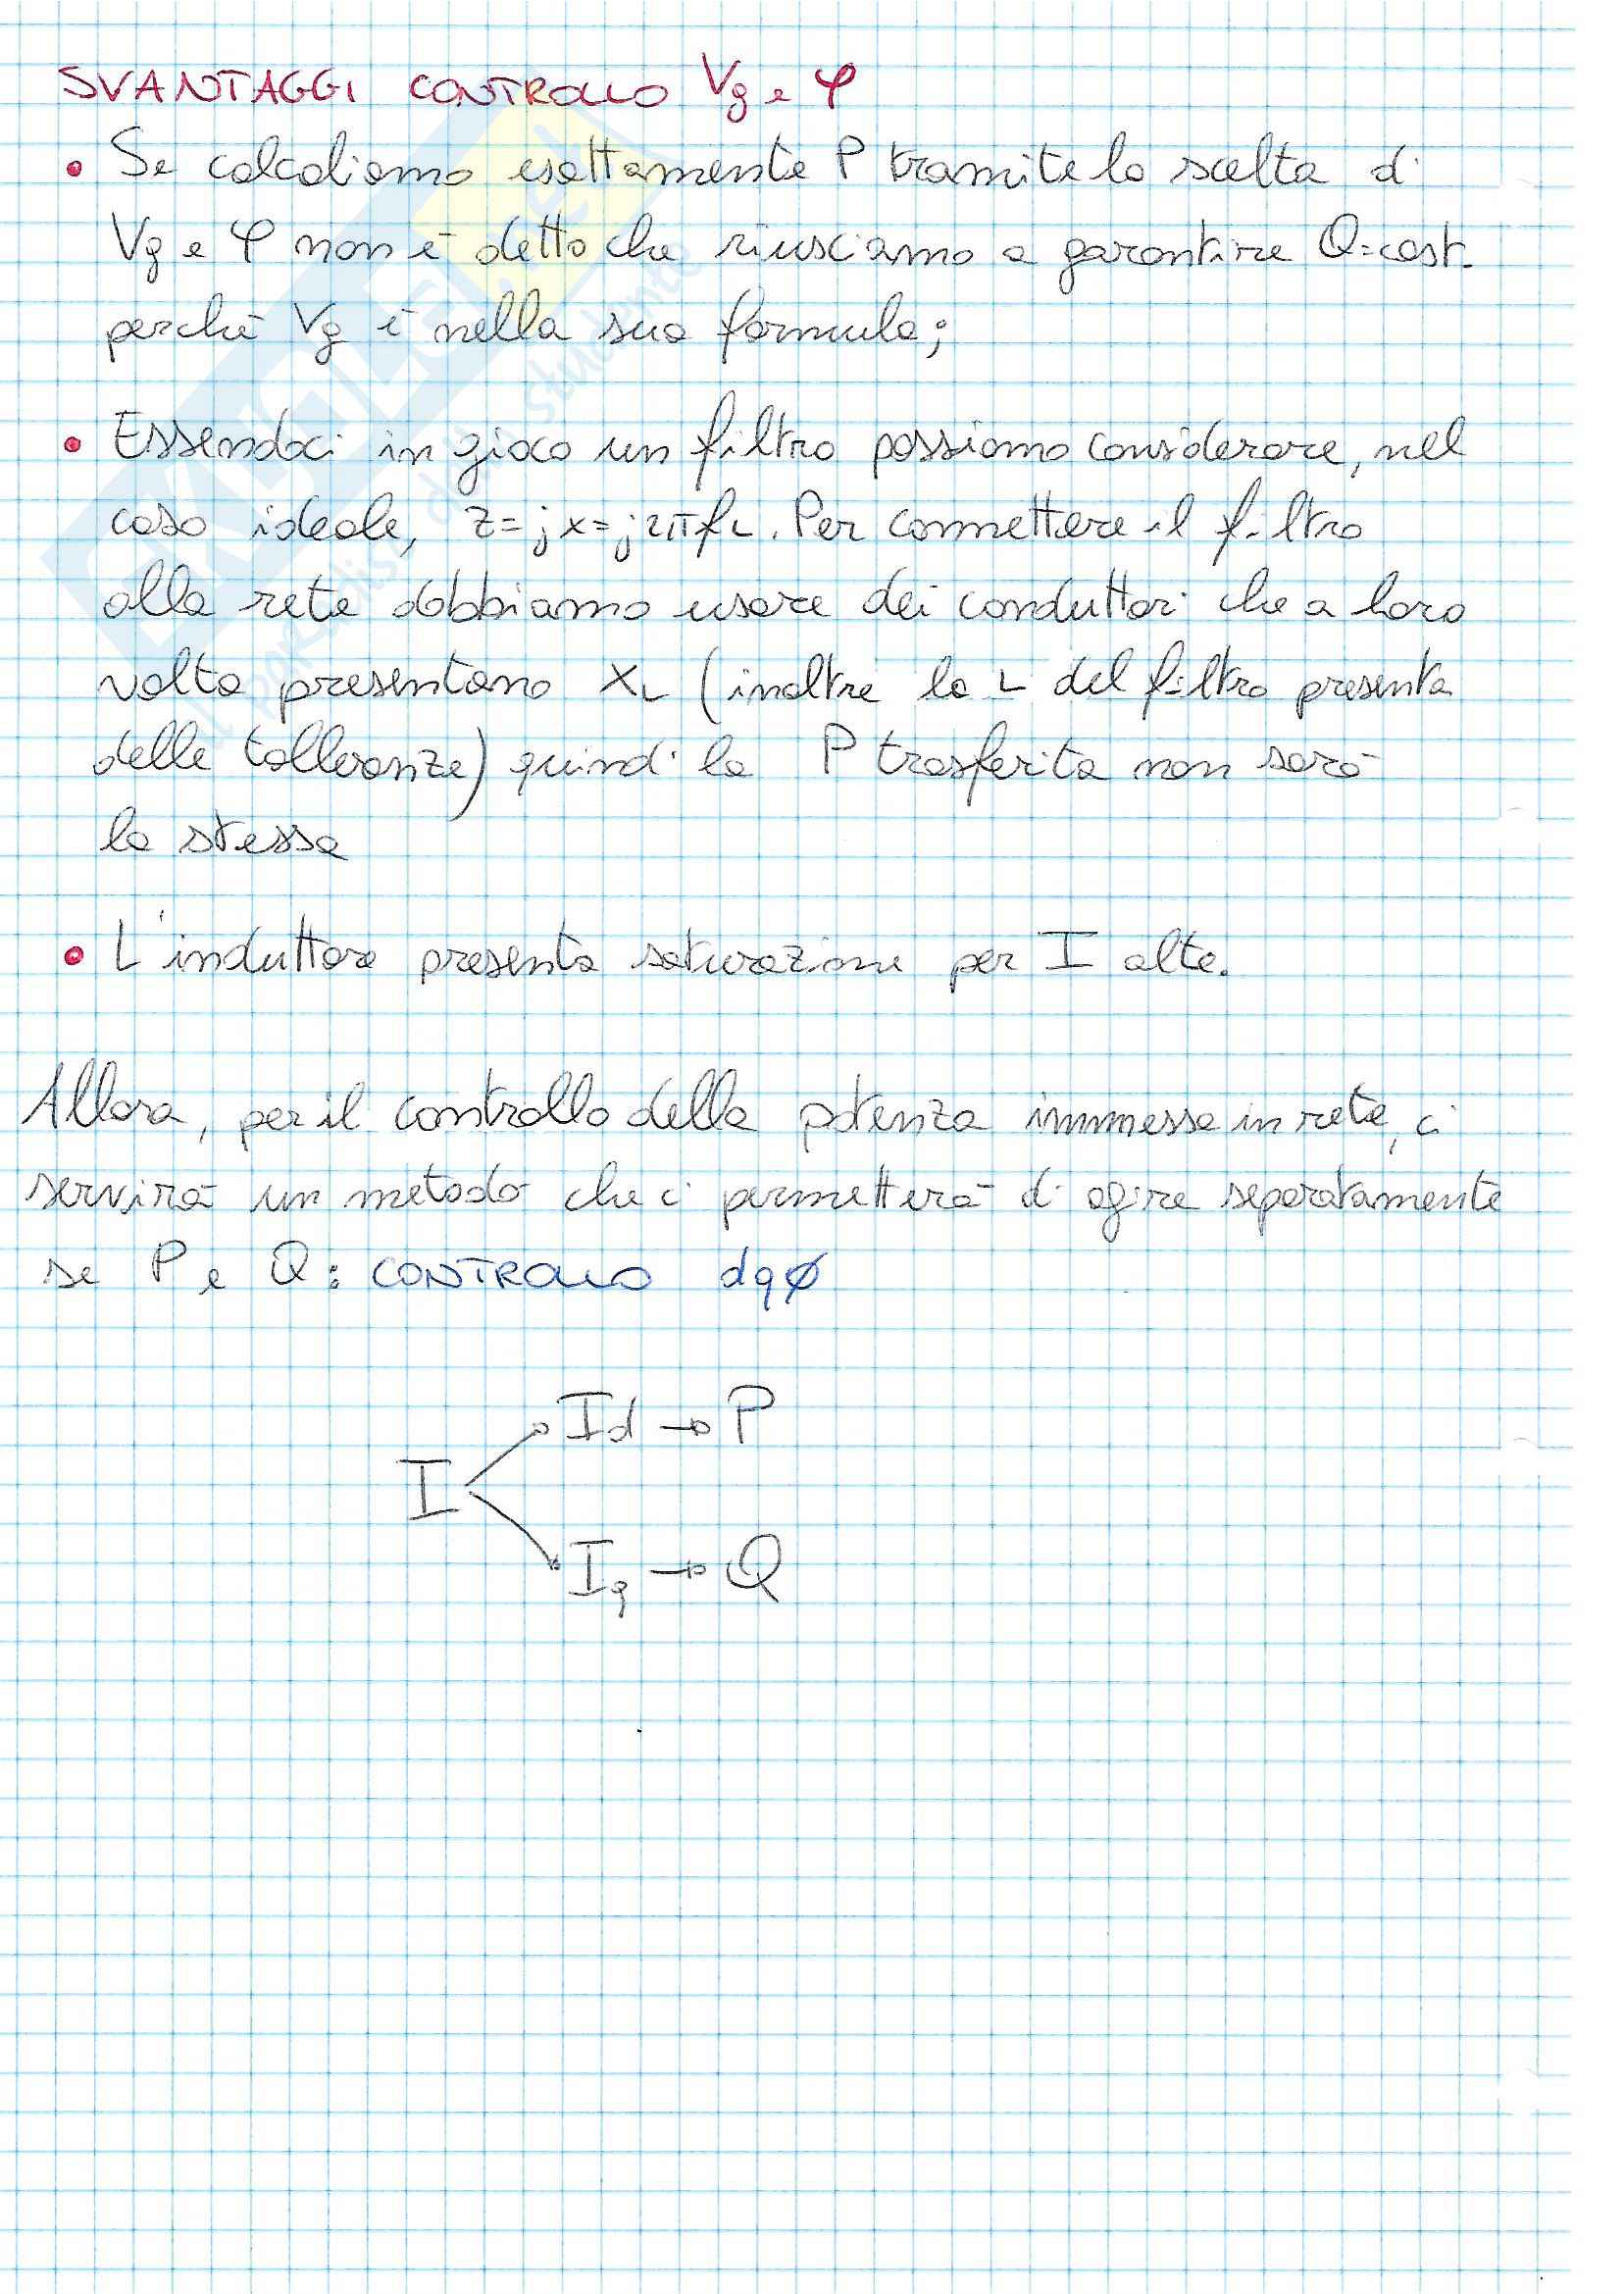 SVANTAGGI CONTROLLO Vg e φ
• Se calcoliamo esattamente P tramite la scelta di
Vg e φ non è detto che riusciamo a garantire Q=cost.
perché Vg è nella sua formula;
• Essendoci in gioco un filtro possiamo considerare, nel
caso ideale, z=jx=j2πfL. Per connettere il filtro
alla rete dobbiamo usare dei conduttori che a loro
volta presentano XL (inoltre la L del filtro presenta
delle tolleranze) quindi la P trasferita non sarà
la stessa
• L'induttore presenta saturazione per I alte.
Allora, per il controllo della potenza immessa in rete, ci
servirà un metodo che ci permetterà di agire separatamente
se P e Q: CONTROLLO dqø
Id → P
I
Iq → Q